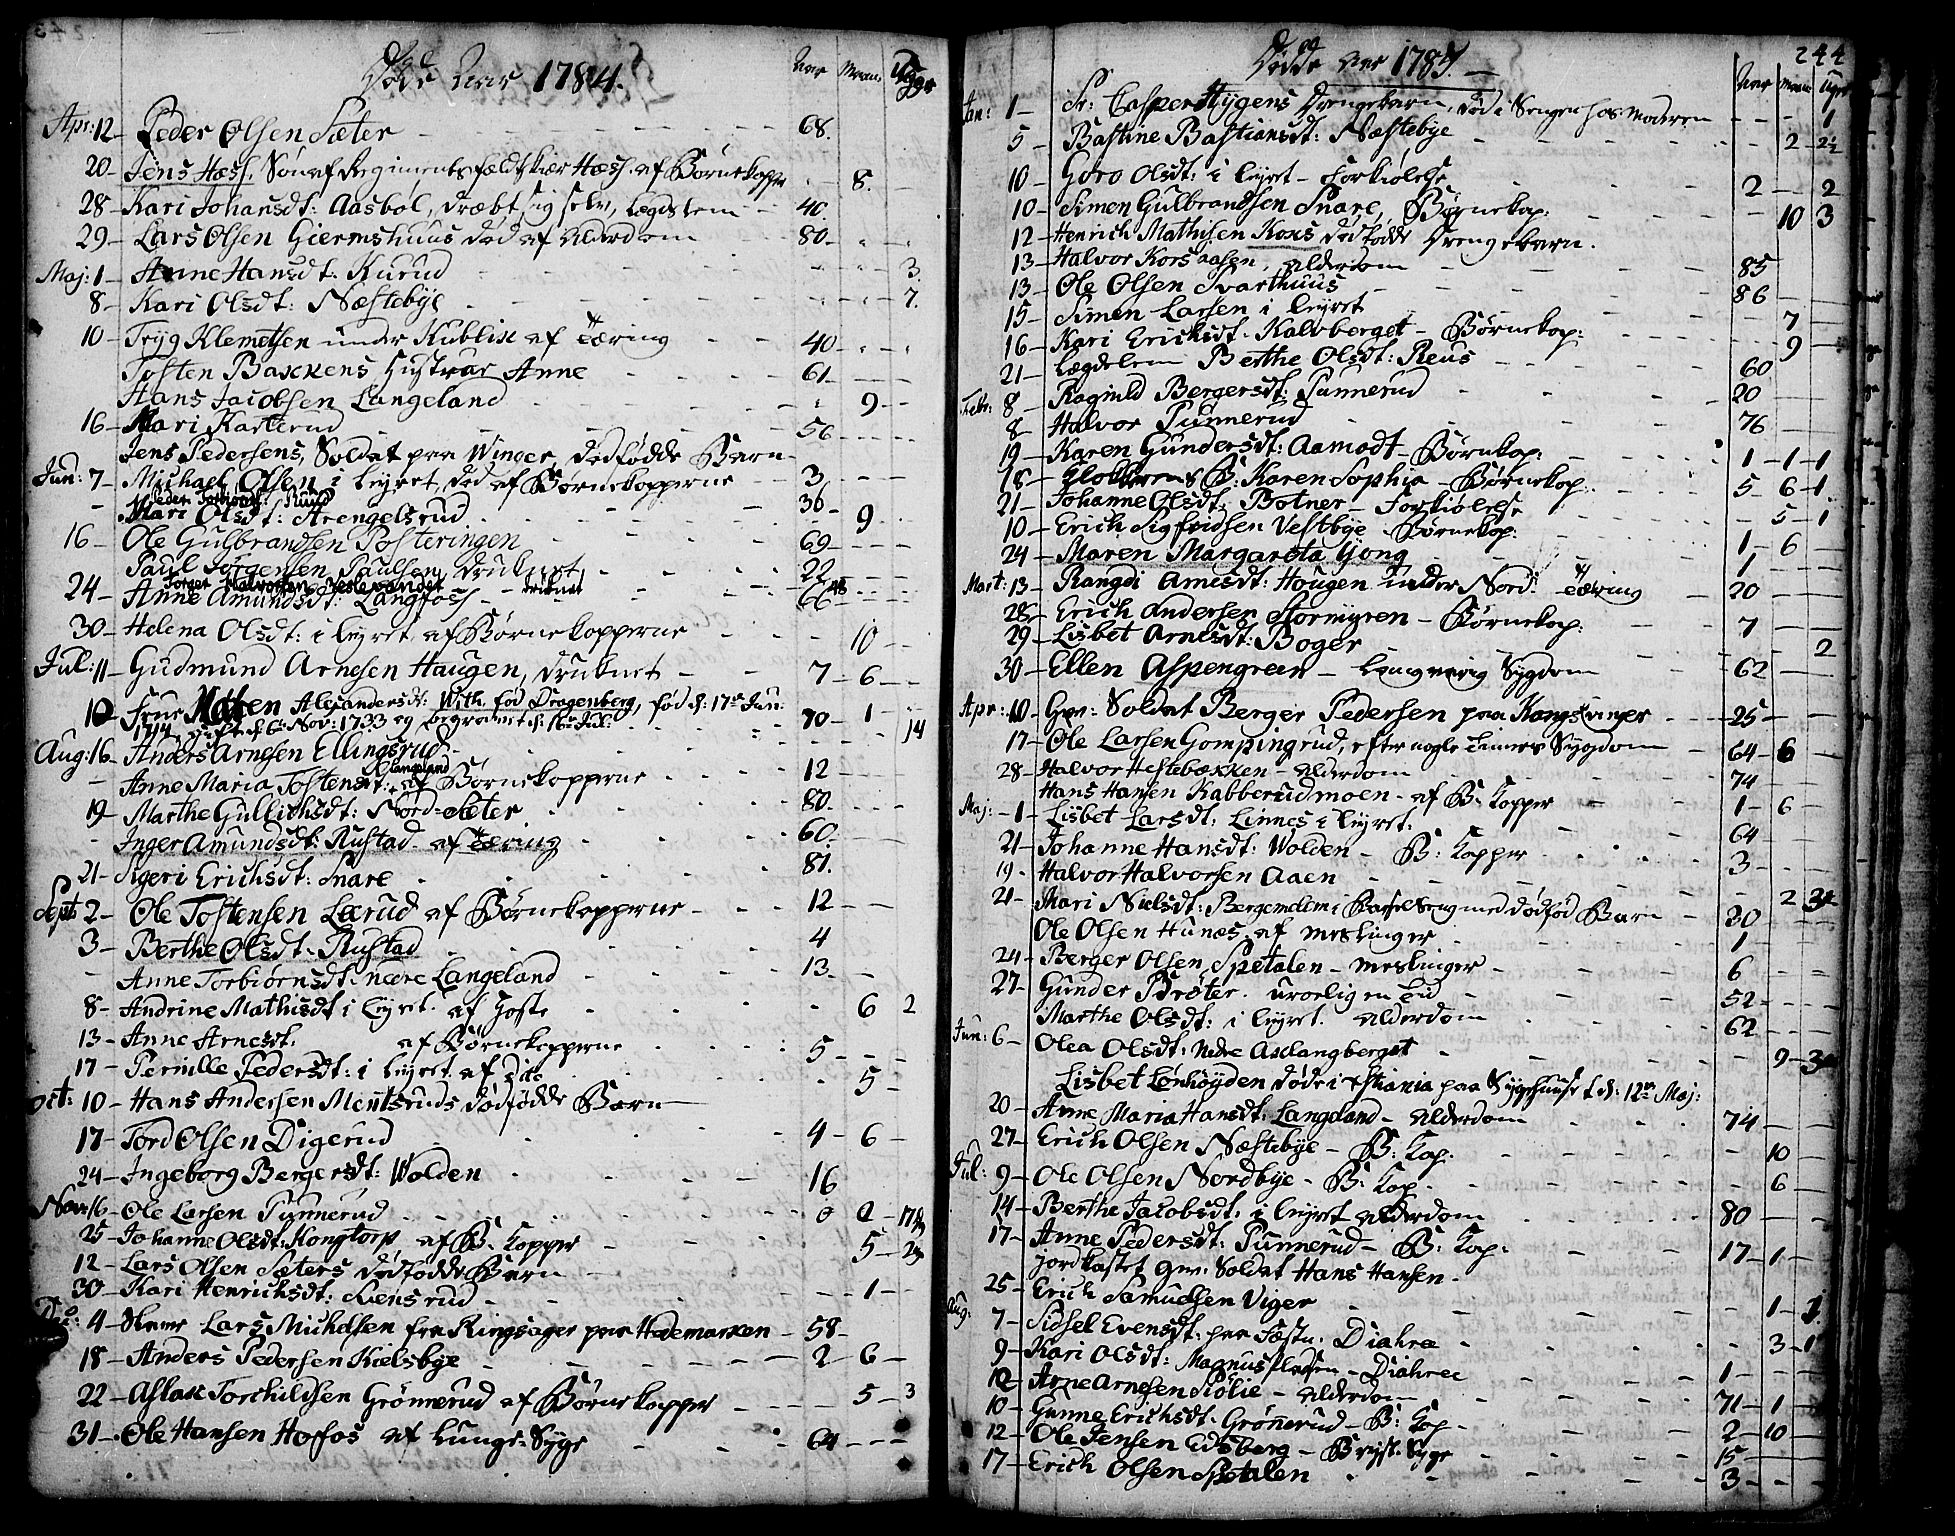 Døde Aar 1784.
Aar Maan: Uger
Apr: 12 – Peder Olsen Sæter – 68.
20 – Jens Hæss. Søn af Regimentsfældtskiær Hæss. af Børnekopper – 8.
28 – Kari Johansdt: Aasbøl, dræbt sig selv, Lægdslem – 40
29 – Lars Olsen Giermshuus død af Alderdom – 80 –
Maj: 1 – Anne Hansdt: Kurud – 3
8 – Kari Olsdt: Næstebye – 7.
10 – Tryg Klemetsen under Kublix af Tæring – 40 –
Tosten Baxkens Hustrue Anne – 61 –
Hans Jacobsen Langeland – 9 –
16 – Mari Karterud – 56
Jens Pedersens, Soldat paa Winger, dødfødde Barn
Jun: 7 – Michael Olsen i Lejret, død af Børnekopperne – 3 –
Peder Torbiørns. Ruud – 36 –
Mari Olsdt: Arengelsrud – 9
16 – Ole Gulbrandsen Posteringen – 69 –
Paul Jørgensen Paulsen, druknet – 22
Jørgen Halvorsen Vesle vandet – druknet
24 – Anne Amundsdt: Langfoss – 66
30 – Helena Olsdt: i Lejret af Børnekopperne – 10
Jul: 11 – Gudmund Arnesen Haugen, druknet – 7 – 6 –
10 – Frue Maren Alexandersdt: With, fød Dragenberg, fød d: 17de Jun:
1714, gift d: 6t Nov: 1733 og begravet d: 16de Jul: – 70 – 1 – 14
Aug: 16 – Anders Arnesen Ellingsrud
Anne Maria Tostensdt: Langeland af Børnekopperne – 12
19 – Marthe Gullichsdt: Nord-Sæter – 80 –
Inger Amundsdt: Rustad af Tæring – 60.
21 – Sigeri Erichsdt: Snare – 81.
Sept: 2 – Ole Tostensen Lærud af Børnekopperne – 12 –
3 – Berthe Olsdt: Rustad – 4
Anne Torbiørnsdt: nedre Langeland – 13 –
8 – Andrine Mathisdt i Lejret. af Hoste – 6 2
13 – Anne Arnesdt: af Børnekopperne – 5 –
17 – Pernille Pedersdt: i Lejret af dito – 5 –
Oct: 10 – Hans Andersen Mentsruds dødfødde Barn
17 – Tord Olsen Digerud – 4 – 6 –
24 – Ingeborg Bergersdt: Wolden – 16
Nov: 16 – Ole Larsen Punnerud – 0 0 – 17
25 – Johanne Olsdt: Kongtorp af B: Kopper – 5 – 2
12 – Lars Olsen Sæters dødfødde Barn
30 – Kari Henrichsdt: Svensrud – 1 –
4 – Lars Michelsen fra Ringsager paa Hedemarken – 58 –
18 – Anders Pedersen Kielsbye – 2 6 –
22 – Aslak Torchildsen Grønnerud af Børnekopper – 5 – 3
31 – Ole Hansen Hofos af Lunge-Syge – 64 –
244
Døde Aar 1785. –
Aar Maan: Uger
Jan: 1 – Sr: Casper Hygens Drengebarn, død i Sengen hos Moderen – 1
5 – Bastine Bastiansdt: Næstebye – 2 – 2½
10 – Goro Olsdt: i Lejret – Forkiølelse – 2 – 2
10 – Simen Gulbrandsen Snare, Børnekop: – 10 3
12 – Henrich Mathisen Koxs dødfødde Drengebarn.
13 – Halvor Korsaasen, Alderdom – 85
13 – Ole Olsen Svarthuus – 86
15 – Simen Larsen i Lejret – 7 –
16 – Kari Erichsdt: Kalvberget – Børnekop: – 9
21 – Lægdslem Berthe Olsdt: Reus – 60
Febr: 8 – Ragnild Bergersdt: Punnerud – 20
8 – Halvor Punnerud – 76 –
19 – Karen Gundersdt: Aamodt – Børnekop: – 1 – 1 – 1
18 – Klokkerens B: Karen Sophia – Børnekop: – 5 – 6 – 1
21 – Johanne Olsdt: Botner – Forkiølelse – 5 – 1
10 – Erich Sigfridsen Vestbye Børnekop: – 1 – 6 –
24 – Maren Margareta Gong – 1 –
Mart: 13 – Rangdi Arnesdt: Hougen under Nord: Tæring – 20 –
28 – Erich Andersen Stormyren – Børnekop: – 7 –
29 – Lisbet Arnesdt: Boger – 2
30 – Ellen Aspengreen – Langvarig Sygdom – 62 –
Apr: 10 – Gev: Soldat Berger Pedersen paa Kongswinger – 25 –
17 – Ole Larsen Gompingrud, efter nogle Timers Sygdom – 64 – 6
28 – Halvor Hestebækken – Alderdom – 74
Hans Hansen Kabberudmoen – af B: Kopper – 1 – 6 –
Maj: 1 – Lisbet Larsdt: Linnes i Lejret: – 64
21 – Johanne Hansdt: Wolden – B: Kopper – 3 –
19 – Halvor Halvorsen Aaen – 2 3
21 – Mari Nielsdt: Bergemelem i Barselseng med dødfød Barn – 30
Ole Olsen Hunæs. af Meslinger – 1 –
24 – Berger Olsen Spetalen – Meslinger – 6
27 – Gunder Brøter. urolig en Tid – 52 –
Marthe Olsdt: i Lejret. Alderdom – 62
Jun: 6 – Olea Olsdt: Nedre Aslangberget – 9 – 3
Lisbet Lønhøyden døde i Xstiania paa Sygehuuset d: 12te Maj:
20 – Anne Maria Hansdt: Langeland – Alderdom – 74 –
27 – Erich Olsen Næstebye – B: Kop. – 10 –
Jul: 9 – Ole Olsen Nordbye – B: Kop – 6 –
14 – Berthe Jacobsdt: i Lejret Alderdom – 80 –
17 – Anne Pedersdt: Punnerud – B: Kop: – 17 – 1 –
Jordkastet Gev: Soldat Hans Hansen –
25 – Erich Samuelsen Viger – 1 – 1
Aug: 7 – Sidsel Evensdt: paa Fæstn: Diahree – 3 – 1
9 – Kari Olsdt: Magnus Pladsen – Diahree – 1 –
12 – Arne Arnesen Siølie – Alderdom – 71 – 1 –
10 – Gunne Erichsdt. Grønerud – B: Kop – 2 – 10 –
12 – Ole Jensen Edsberg – Bryst-Syge – 15 –
17 – Erich Olsen Spetalen – 3 –